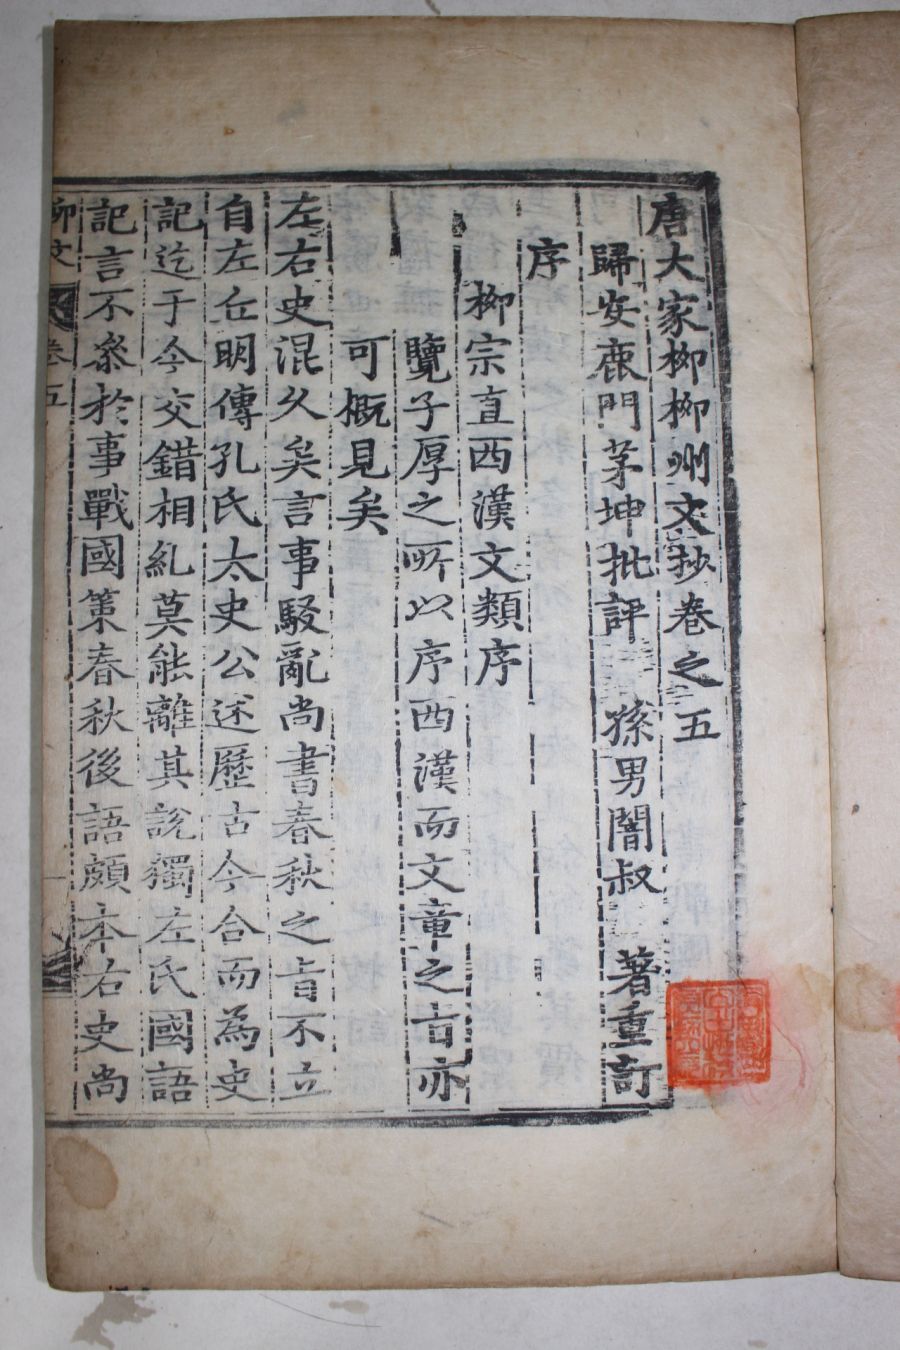 唐大家柳柳州文抄卷之五
歸安鹿門茅坤批評 孫男闇叔 著重訂
序
柳宗直西漢文類序
覽子厚之所以序西漢而文章之旨亦
可概見矣
左右史混久矣言事駁亂尚書春秋之旨不立
自左丘明傳孔氏太史公述歷古今合而為史
記迄于今交錯相糺莫能離其說獨左氏國語
記言不叅於事戰國策春秋後語頗本右史尚
柳文 卷五